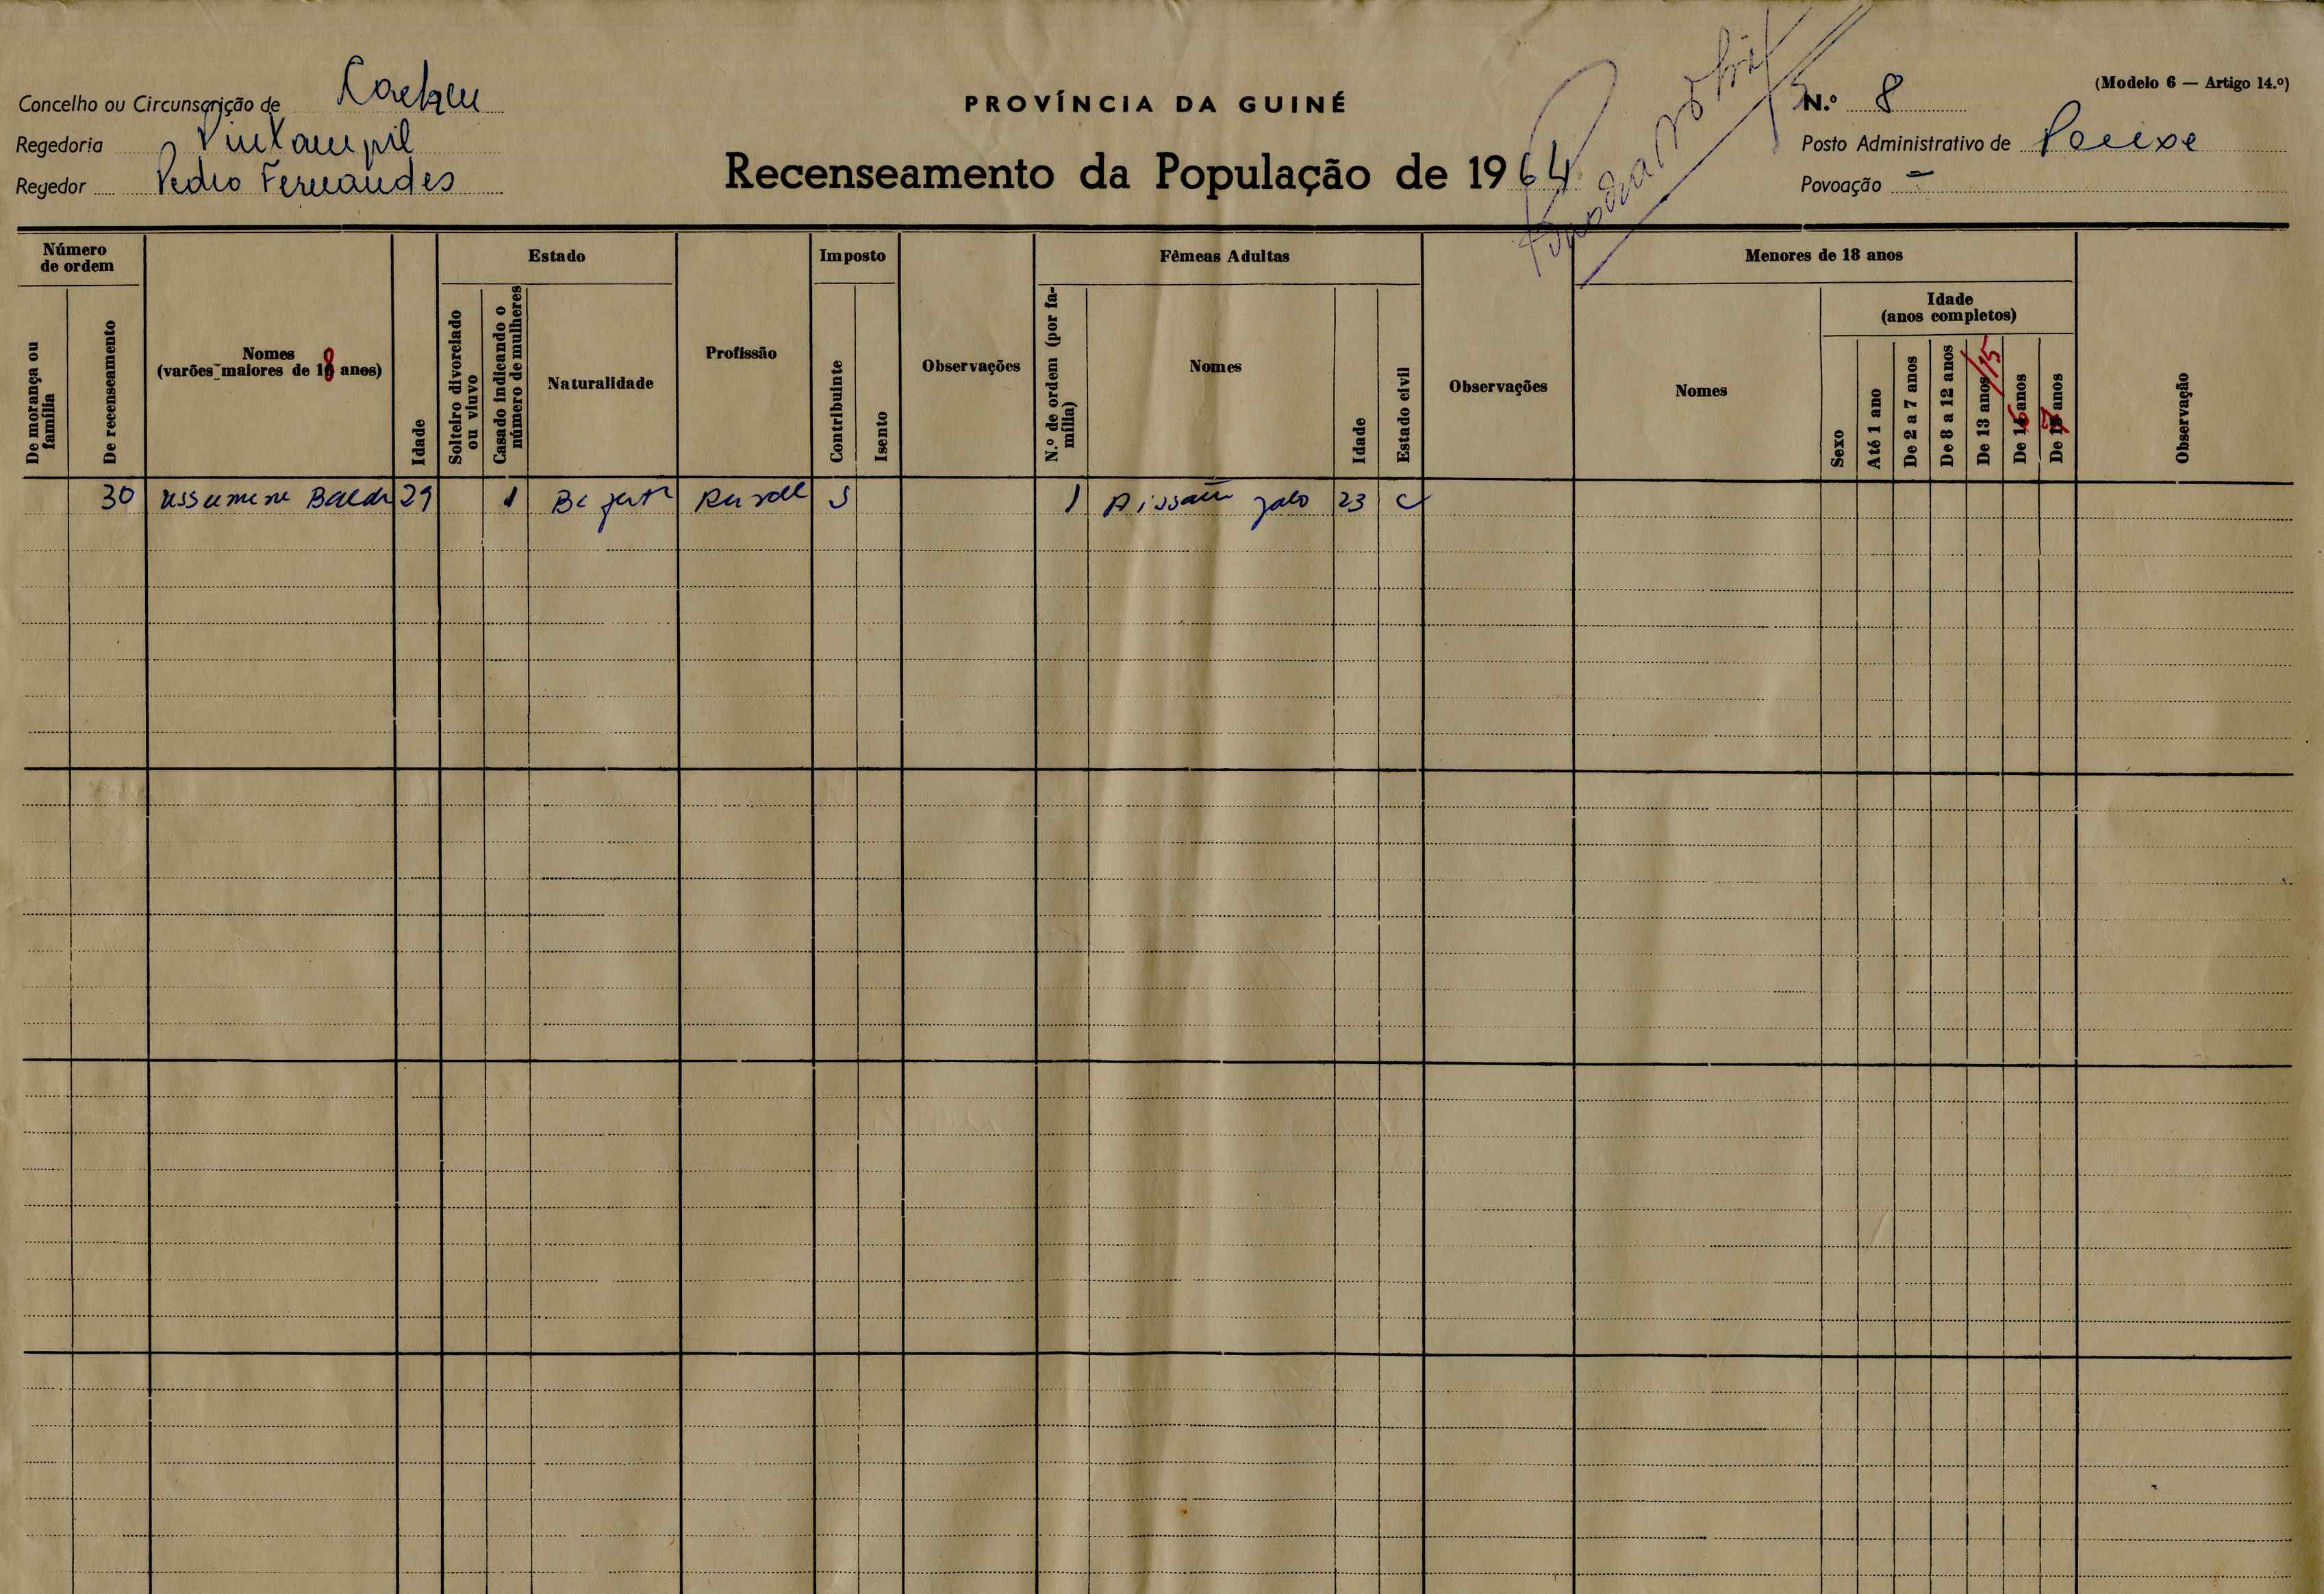 (Modelo 6 — Artigo 14.º)
Concelho ou Circunscrição de
PROVÍNCIA DA GUINÉ
N.º 8
Regedoria
Posto Administrativo de Pecixe
Regedor Pedro Fernandes
Recenseamento da População de 1964
Povoação —
Número de ordem
De morança ou família
De recenseamento
Nomes
(varões maiores de 18 anos)
Idade
Estado
Solteiro divorciado ou viuvo
Casado indicando o número de mulheres
Naturalidade
Profissão
Imposto
Contribuinte
Isento
Observações
Fêmeas Adultas
N.º de ordem (por família)
Nomes
Idade
Estado civil
Observações
Menores de 18 anos
Nomes
Idade
(anos completos)
Sexo
Até 1 ano
De 2 a 7 anos
De 8 a 12 anos
De 13 anos /15
De 16 anos
De 17 anos
Observação
30 Ussumane Balde 29 1 S 1 Aissatu Jalo 23 C